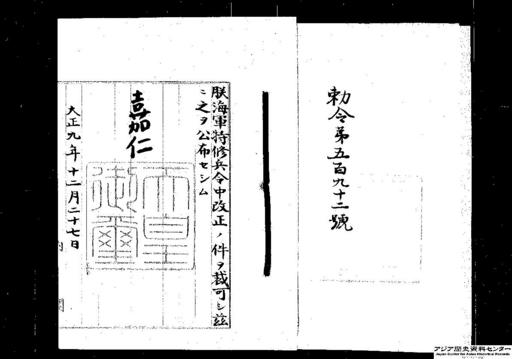 勅令第五百九十二號
朕海軍特修兵令中改正ノ件ヲ裁可シ茲
ニ之ヲ公布セシム
嘉仁
天皇
御璽
大正九年十二月二十七日
内閣
アジア歴史資料センター
Japan Center for Asian Historical Records